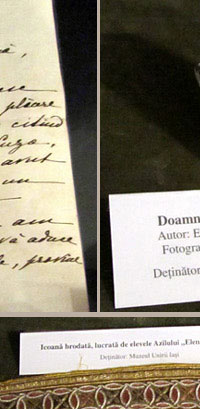 plăcere
citind
Cuza,
avut
un
am
vă aduce
Doamn
Autor: E
Fotogra
Deținător
Icoană brodată, lucrată de elevele Azilului „Elen
Deținător: Muzeul Unirii Iași